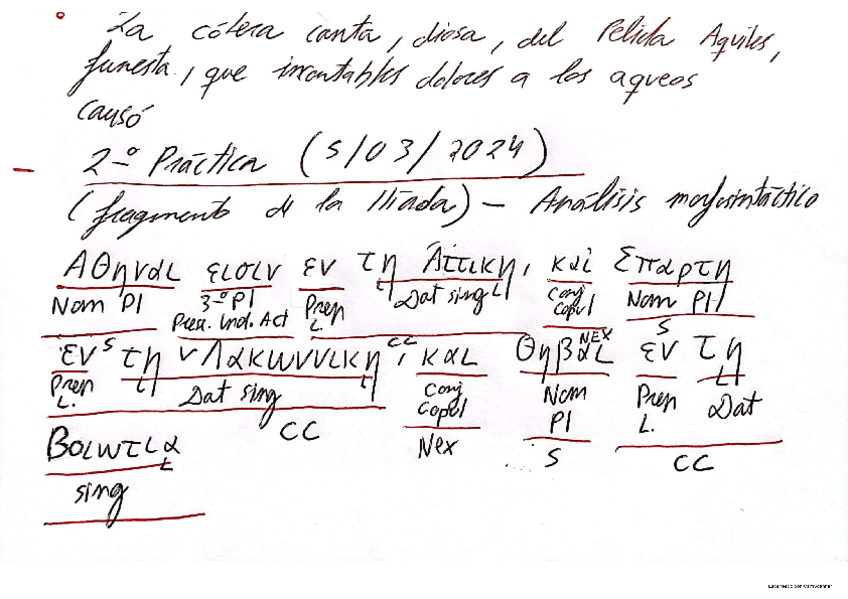 La cólera canta, diosa, del Pelida Aquiles,
funesta, que incontables dolores a los aqueos
causó
2-º Práctica (5/03/2024)
(fragmento de la Ilíada) - Análisis morfosintáctico
Αθηναι εισιν εν τῃ Αττικῃ, και Σπαρτη
Nom Pl 3-º Pl Prep Dat sing Conj Nom Pl
Pres. Ind. Act L. Copul S
S CC NEX
εν τῃ Λακωννικῃ, και Θηβαι εν τῃ
Prep Dat sing Conj Nom Prep Dat
L. Copul Pl L.
CC Nex S CC
Βοιωτιᾳ
sing